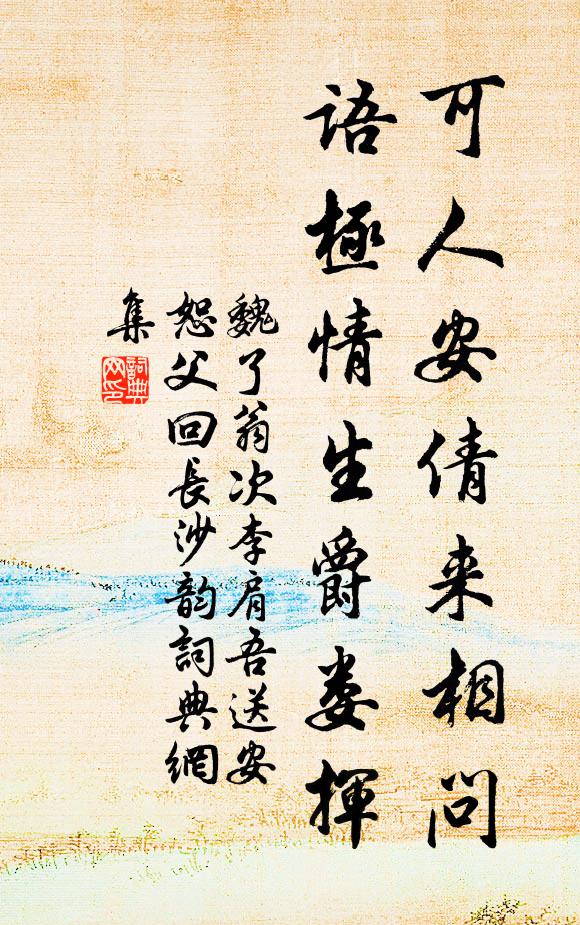 可人安倩来相問
語極情生爵娄揮
魏了翁次李肩吾送安
恕父回長沙韵詞典網
集
詞典
网印